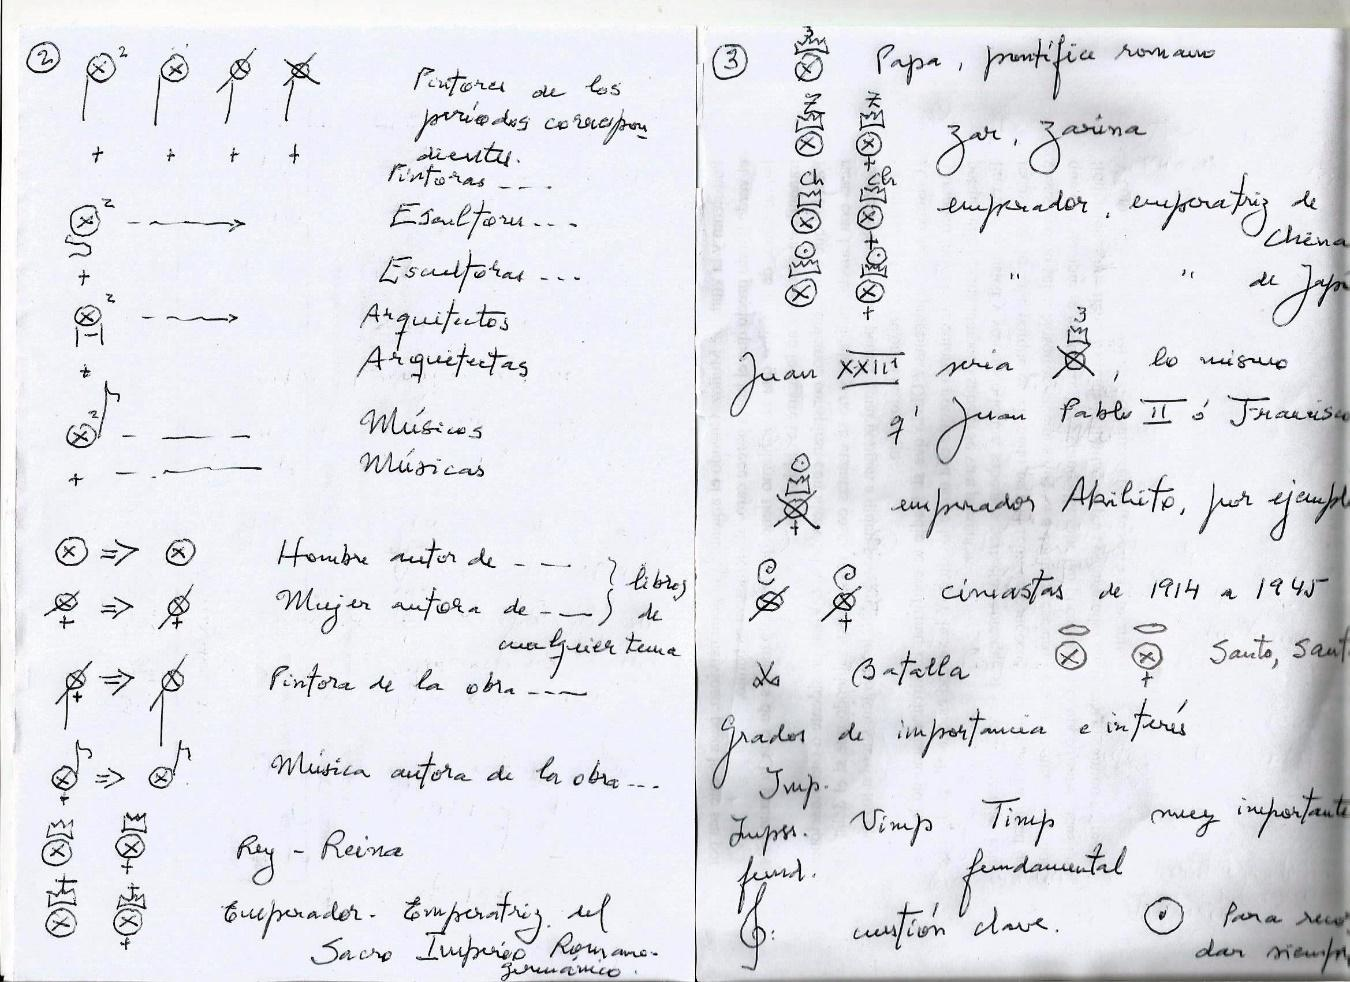 2
2
Pintores de los
períodos correspon
dientes.
+ + + +
Pintoras ---
2
Escultores ---
+
Escultoras ---
2
Arquitectos
+
Arquitectas
2
Músicos
+
Músicas
⊗ => ⊗ Hombre autor de ---
Mujer autora de ---
libros
de
cualquier tema
=> Pintora de la obra ---
=> Música autora de la obra ---
Rey - Reina
Emperador - Emperatriz del
Sacro Imperio Romano-
germánico.
3
3
Papa, pontífice romano
Z Z
Zar, Zarina
Ch Ch
emperador, emperatriz de
China
" " de Japó
3
Juan XXIII sería , lo mismo
q' Juan Pablo II ó Francisco
emperador Akihito, por ejempl
cineastas de 1914 a 1945
Batalla
Santo, Sant
Grados de importancia e interés
Imp.
Impss. Vimp Timp muy importante
fund. fundamental
: cuestión clave.
Para recor
dar siempr